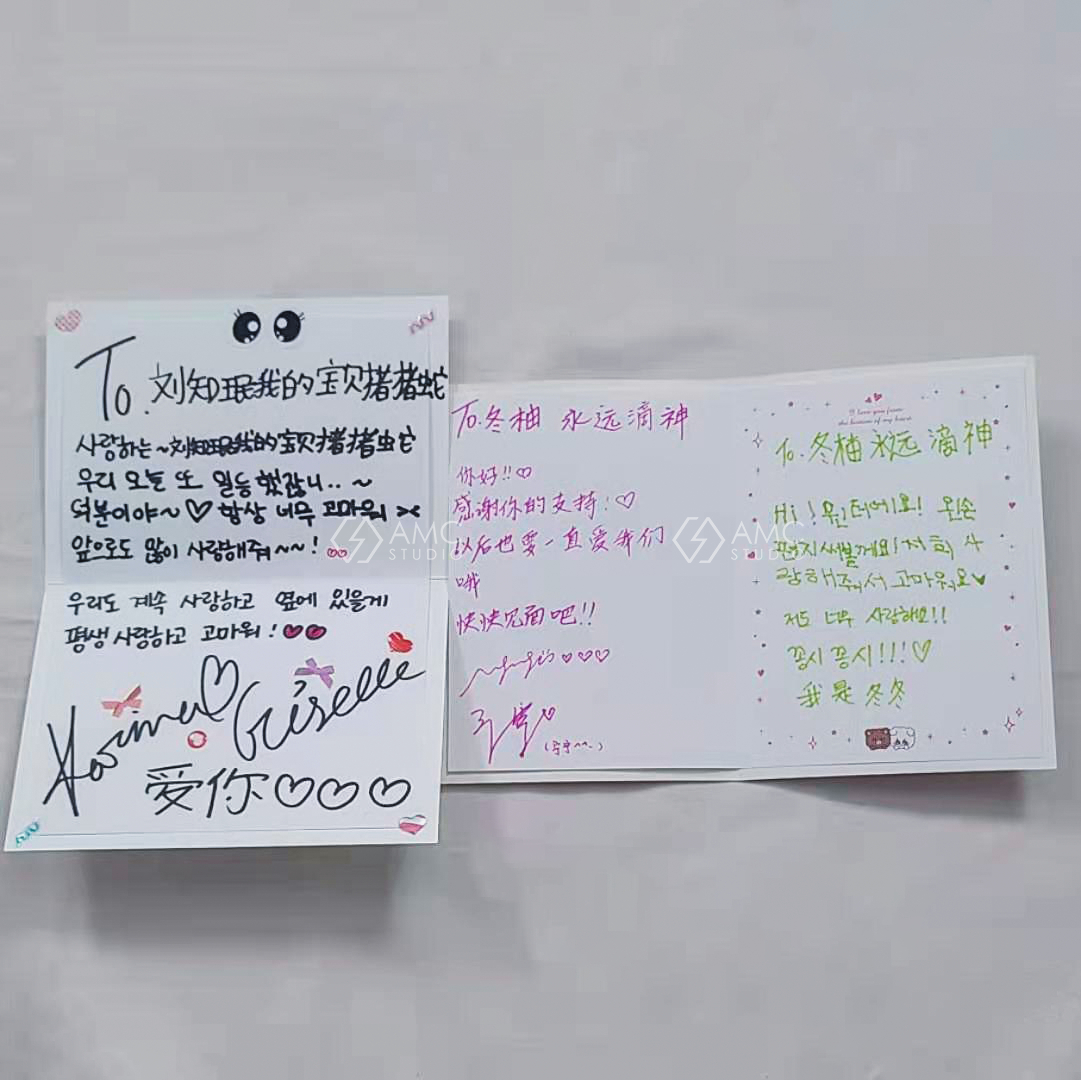 To. 刘知珉我的宝贝猪猪蛇
사랑하는~刘知珉我的宝贝猪猪蛇
우리 오늘 또 일등 했잖니..~
덕분이야~♡ 항상 너무 고마워
앞으로도 많이 사랑해줘~~!
우리도 계속 사랑하고 옆에 있을게
평생 사랑하고 고마워!
Karina♡ Giselle
爱你♡♡♡
To.冬柚 永远滴神
你好!!♡
感谢你的支持!♡
以后也要一直爱我们
哦
快快见面吧!!
I love you from
the bottom of my heart
To.冬柚永远滴神
Hi! 윈터에요! 왼손
편지써볼게요!저희 사
랑해주셔서 고마워요♥
저도 너무 사랑해요!!
꽁시꽁시!!!♡
我是冬冬
AMC
STUDIO
AMC
STUDIO